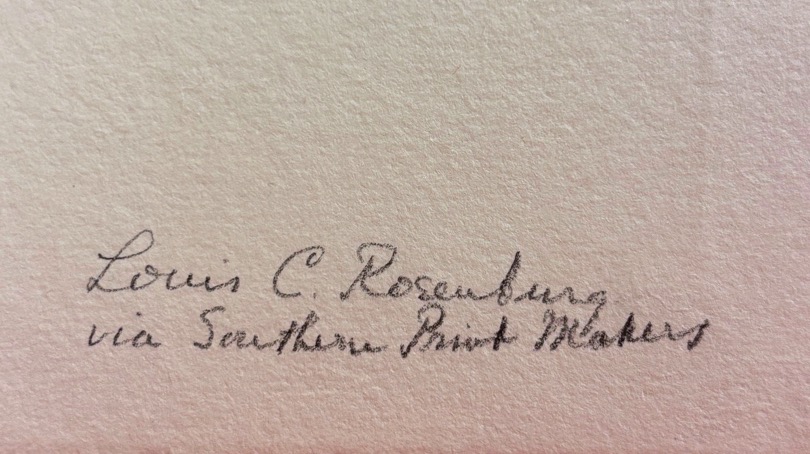 Louis C. Rosenburg
via Southern Print Makers